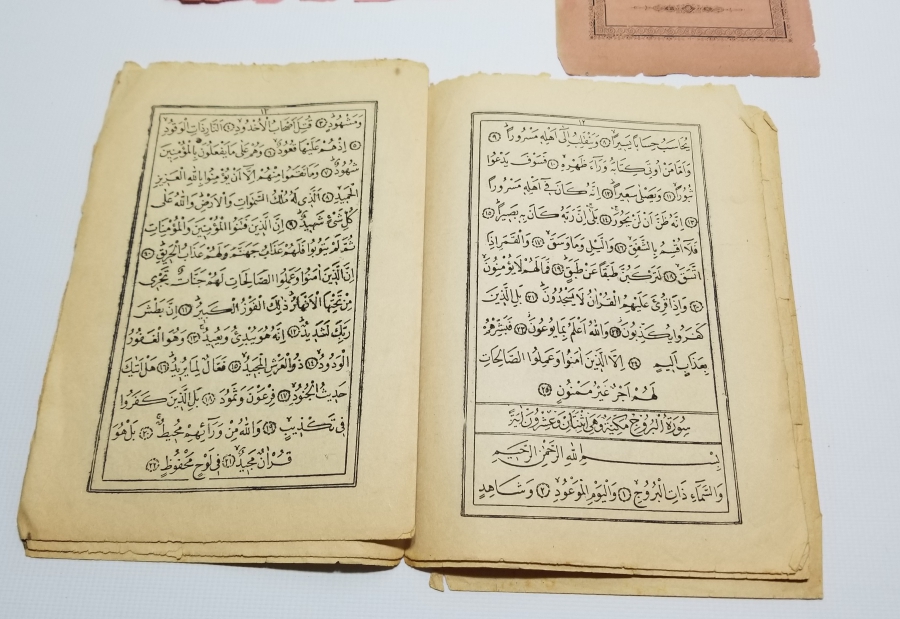 ١٢
يُحَاسَبُ حِسَابًا يَسِيرًاۙ ﴿٨﴾ وَيَنْقَلِبُ اِلٰٓى اَهْلِه۪ مَسْرُورًاۜ ﴿٩﴾
وَاَمَّا مَنْ اُوتِيَ كِتَابَهُ وَرَٓاءَ ظَهْرِه۪ۙ ﴿١٠﴾ فَسَوْفَ يَدْعُوا
ثُبُورًاۙ ﴿١١﴾ وَيَصْلٰى سَع۪يرًاۜ ﴿١٢﴾ اِنَّهُ كَانَ ف۪ٓي اَهْلِه۪ مَسْرُورًاۜ
﴿١٣﴾ اِنَّهُ ظَنَّ اَنْ لَنْ يَحُورَۚ ﴿١٤﴾ بَلٰىۚ اِنَّ رَبَّهُ كَانَ بِه۪ بَص۪يرًاۜ ﴿١٥﴾
فَلَٓا اُقْسِمُ بِالشَّفَقِۙ ﴿١٦﴾ وَالَّيْلِ وَمَا وَسَقَۙ ﴿١٧﴾ وَالْقَمَرِ اِذَا
اتَّسَقَۙ ﴿١٨﴾ لَتَرْكَبُنَّ طَبَقًا عَنْ طَبَقٍۜ ﴿١٩﴾ فَمَا لَهُمْ لَا يُؤْمِنُونَۙ
﴿٢٠﴾ وَاِذَا قُرِئَ عَلَيْهِمُ الْقُرْاٰنُ لَا يَسْجُدُونَۜ ﴿٢١﴾ بَلِ الَّذ۪ينَ
كَفَرُوا يُكَذِّبُونَۘ ﴿٢٢﴾ وَاللّٰهُ اَعْلَمُ بِمَا يُوعُونَۘ ﴿٢٣﴾ فَبَشِّرْهُمْ
بِعَذَابٍ اَل۪يمٍۙ ﴿٢٤﴾ اِلَّا الَّذ۪ينَ اٰمَنُوا وَعَمِلُوا الصَّالِحَاتِ
لَهُمْ اَجْرٌ غَيْرُ مَمْنُونٍ ﴿٢٥﴾
سُورَةُ الْبُرُوجِ مَكِّيَّةٌ وَهِيَ اثْنَتَانِ وَعِشْرُونَ اٰيَةً
بِسْمِ اللّٰهِ الرَّحْمٰنِ الرَّح۪يمِ
وَالسَّمَٓاءِ ذَاتِ الْبُرُوجِۙ ﴿١﴾ وَالْيَوْمِ الْمَوْعُودِۙ ﴿٢﴾ وَشَاهِدٍ
١٣
وَمَشْهُودٍۜ ﴿٣﴾ قُتِلَ اَصْحَابُ الْاُخْدُودِۙ ﴿٤﴾ اَلنَّارِ ذَاتِ الْوَقُودِۙ
﴿٥﴾ اِذْ هُمْ عَلَيْهَا قُعُودٌۙ ﴿٦﴾ وَهُمْ عَلٰى مَا يَفْعَلُونَ بِالْمُؤْمِن۪ينَ
شُهُودٌۜ ﴿٧﴾ وَمَا نَقَمُوا مِنْهُمْ اِلَّٓا اَنْ يُؤْمِنُوا بِاللّٰهِ الْعَز۪يزِ
الْحَم۪يدِۙ ﴿٨﴾ اَلَّذ۪ي لَهُ مُلْكُ السَّمٰوَاتِ وَالْاَرْضِۜ وَاللّٰهُ عَلٰى
كُلِّ شَيْءٍ شَه۪يدٌۜ ﴿٩﴾ اِنَّ الَّذ۪ينَ فَتَنُوا الْمُؤْمِن۪ينَ وَالْمُؤْمِنَاتِ
ثُمَّ لَمْ يَتُوبُوا فَلَهُمْ عَذَابُ جَهَنَّمَ وَلَهُمْ عَذَابُ الْحَر۪يقِۜ ﴿١٠﴾
اِنَّ الَّذ۪ينَ اٰمَنُوا وَعَمِلُوا الصَّالِحَاتِ لَهُمْ جَنَّاتٌ تَجْر۪ي
مِنْ تَحْتِهَا الْاَنْهَارُۜ ذٰلِكَ الْفَوْزُ الْكَب۪يرُۜ ﴿١١﴾ اِنَّ بَطْشَ
رَبِّكَ لَشَد۪يدٌۜ ﴿١٢﴾ اِنَّهُ هُوَ يُبْدِئُ وَيُع۪يدُۚ ﴿١٣﴾ وَهُوَ الْغَفُورُ
الْوَدُودُۙ ﴿١٤﴾ ذُو الْعَرْشِ الْمَج۪يدُۙ ﴿١٥﴾ فَعَّالٌ لِمَا يُر۪يدُۜ ﴿١٦﴾ هَلْ اَتٰيكَ
حَد۪يثُ الْجُنُودِۙ ﴿١٧﴾ فِرْعَوْنَ وَثَمُودَۜ ﴿١٨﴾ بَلِ الَّذ۪ينَ كَفَرُوا
ف۪ي تَكْذ۪يبٍۙ ﴿١٩﴾ وَاللّٰهُ مِنْ وَرَٓائِهِمْ مُح۪يطٌۚ ﴿٢٠﴾ بَلْ هُوَ
قُرْاٰنٌ مَج۪يدٌۙ ﴿٢١﴾ ف۪ي لَوْحٍ مَحْفُوظٍ ﴿٢٢﴾